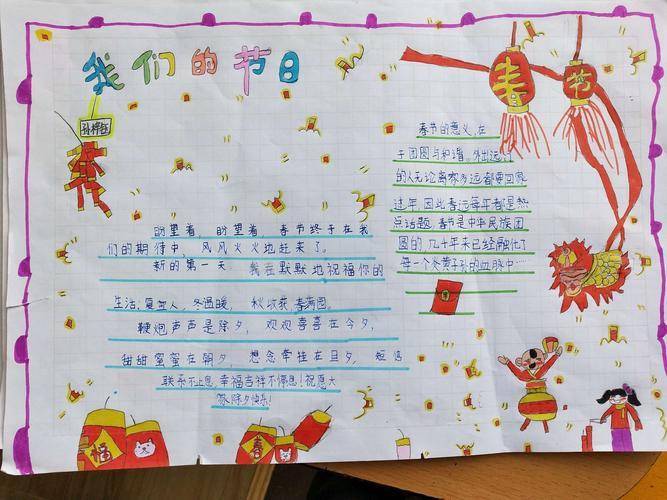 我们的节日
春节
春节的意义,在
于团圆与和谐。外出远行
的人无论离家多远都要回家
过年,因此春运每年都是热
点话题。春节是中华民族团
圆的,几十年来已经融化了
每一个炎黄子孙的血脉中……
盼望着,盼望着,春节终于在我
们的期待中,风风火火地赶来了。
新的第一天,我在默默地祝福你的
生活,夏宜人,冬温暖,秋收获,春满园。
鞭炮声声是除夕,欢欢喜喜在今夕,
甜甜蜜蜜在朝夕,想念牵挂在旦夕,短信
联系不止息,幸福吉祥不停息!祝愿大
家,除夕快乐!
福
春